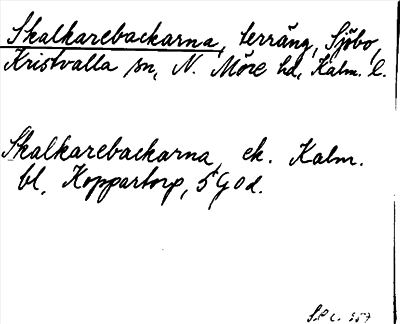 Skalkarebackarna, terräng, Sjöbo,
Kristvalla sn, N. Möre hd, Kalm. l.
Skalkarebackarna, ek. Kalm.
bl. Koppartorp, 5 G 0 d.